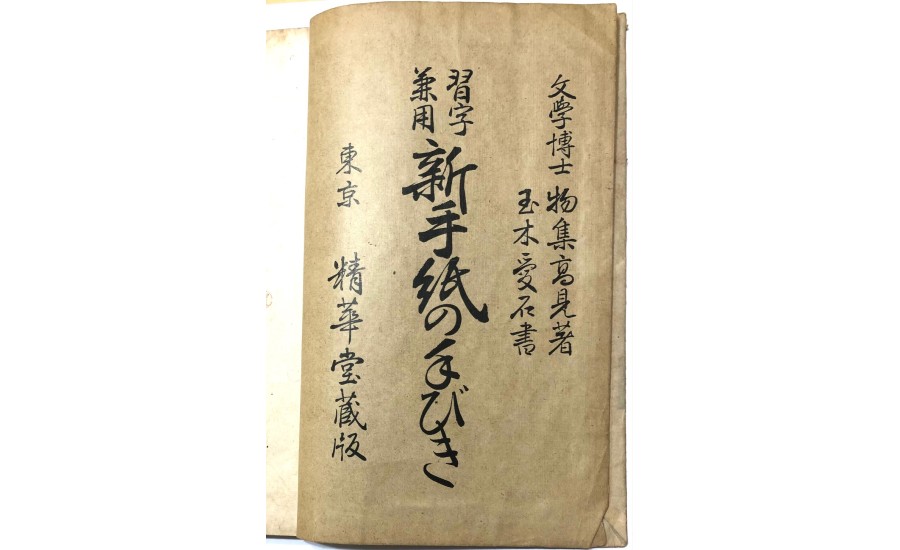 文學博士 物集高見著
玉木愛石書
習字
兼用
新手紙の手びき
東京 精華堂蔵版